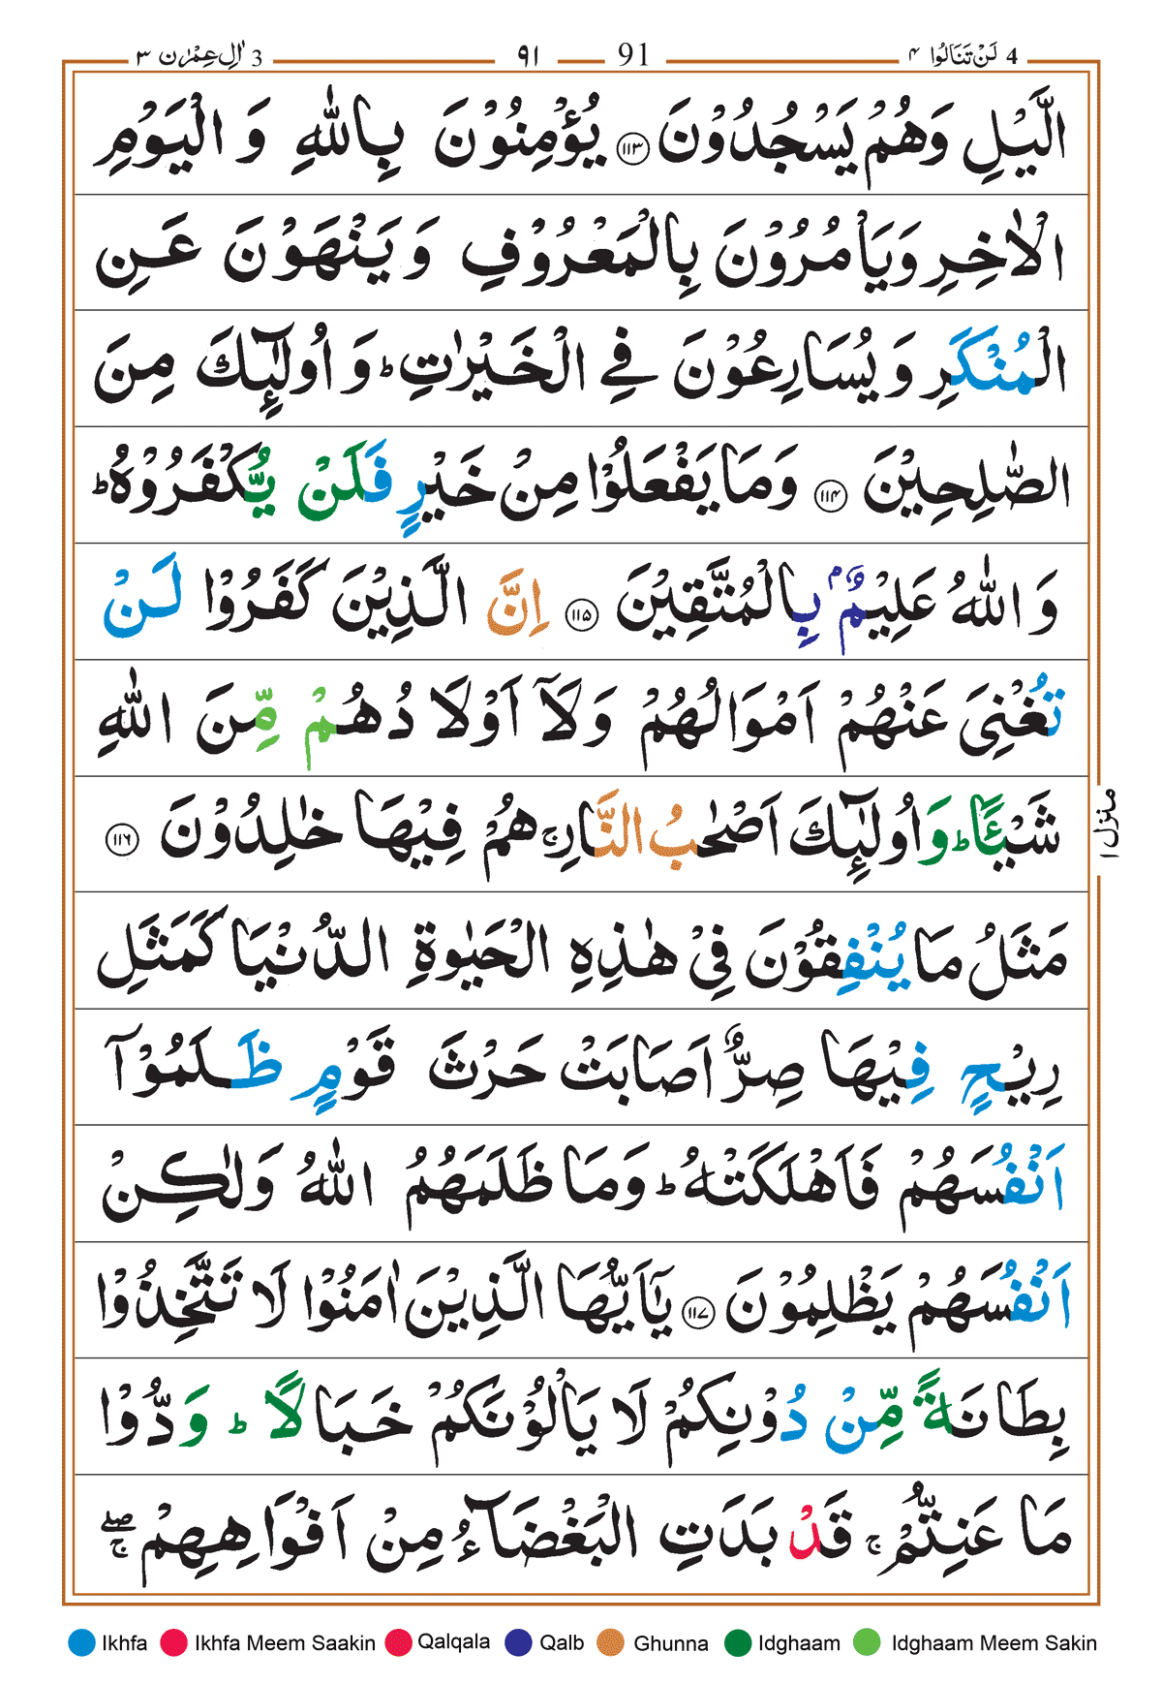 4 لَنْ تَنَالُوا ۴ 91 ۹۱ 3 اٰلِ عِمْرٰن ۳
الَّيْلِ وَهُمْ يَسْجُدُوْنَ ﴿۱۱۳﴾ يُؤْمِنُوْنَ بِاللّٰهِ وَ الْيَوْمِ
الْاٰخِرِ وَيَاْمُرُوْنَ بِالْمَعْرُوْفِ وَيَنْهَوْنَ عَنِ
الْمُنْكَرِ وَيُسَارِعُوْنَ فِي الْخَيْرٰتِ ؕ وَاُولٰٓئِكَ مِنَ
الصّٰلِحِيْنَ ﴿۱۱۴﴾ وَمَا يَفْعَلُوْا مِنْ خَيْرٍ فَلَنْ يُّكْفَرُوْهُ ؕ
وَ اللّٰهُ عَلِيْمٌۢ بِالْمُتَّقِيْنَ ﴿۱۱۵﴾ اِنَّ الَّذِيْنَ كَفَرُوْا لَنْ
تُغْنِىَ عَنْهُمْ اَمْوَالُهُمْ وَلَاۤ اَوْلَا دُهُمْ مِّنَ اللّٰهِ
شَيْئًا ؕ وَاُولٰٓئِكَ اَصْحٰبُ النَّارِ ۚ هُمْ فِيْهَا خٰلِدُوْنَ ﴿۱۱۶﴾
مَثَلُ مَا يُنْفِقُوْنَ فِىْ هٰذِهِ الْحَيٰوةِ الدُّنْيَا كَمَثَلِ
رِيْحٍ فِيْهَا صِرٌّ اَصَابَتْ حَرْثَ قَوْمٍ ظَلَمُوْۤا
اَنْفُسَهُمْ فَاَهْلَكَتْهُ ؕ وَمَا ظَلَمَهُمُ اللّٰهُ وَلٰكِنْ
اَنْفُسَهُمْ يَظْلِمُوْنَ ﴿۱۱۷﴾ يٰۤاَيُّهَا الَّذِيْنَ اٰمَنُوْا لَا تَتَّخِذُوْا
بِطَانَةً مِّنْ دُوْنِكُمْ لَا يَاْلُوْنَكُمْ خَبَالًا ؕ وَدُّوْا
مَا عَنِتُّمْ ۚ قَدْ بَدَتِ الْبَغْضَآءُ مِنْ اَفْوَاهِهِمْ ۖۚ
منزل ۱
Ikhfa Ikhfa Meem Saakin Qalqala Qalb Ghunna Idghaam Idghaam Meem Sakin